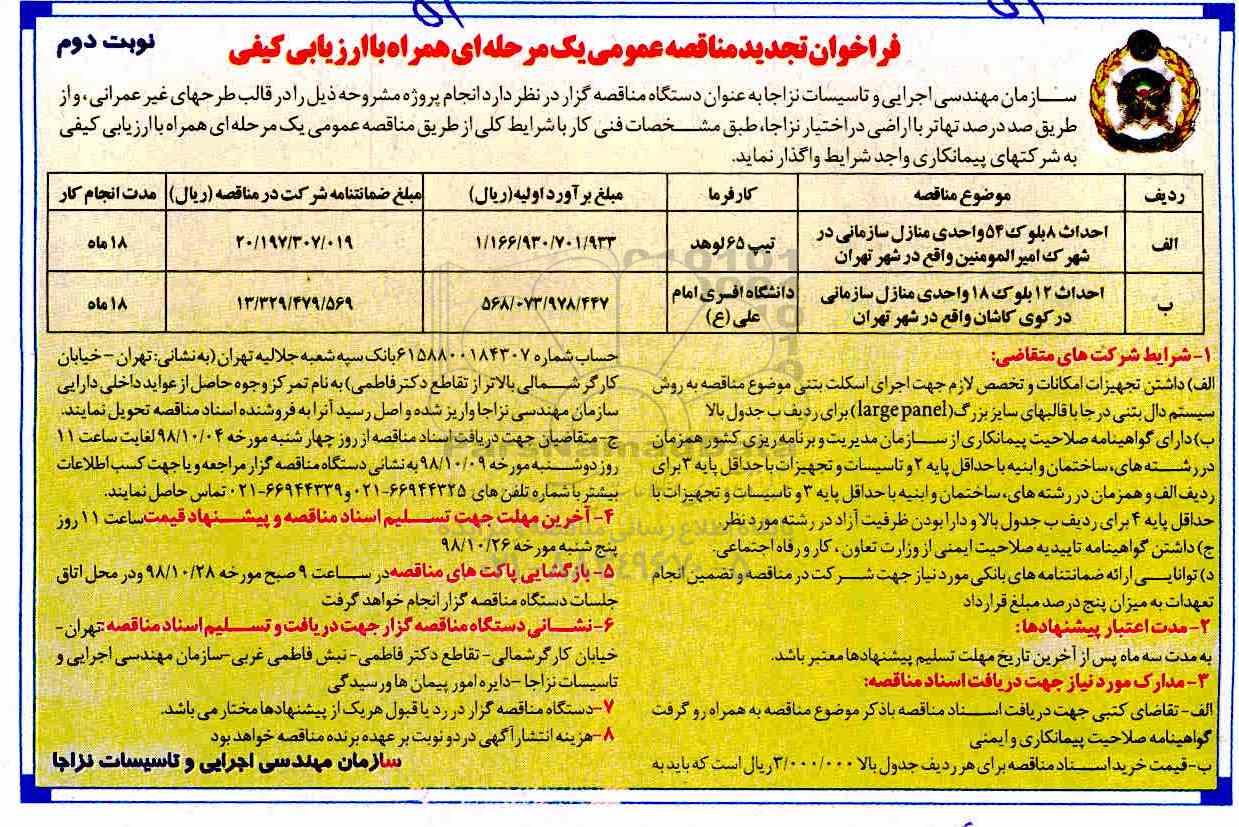 نوبت دوم
فراخوان تجدید مناقصه عمومی یک مرحله ای همراه با ارزیابی کیفی
سازمان مهندسی اجرایی و تاسیسات نزاجا به عنوان دستگاه مناقصه گزار در نظر دارد انجام پروژه مشروحه ذیل را در قالب طرحهای غیر عمرانی ، و از
طریق صد در صد تهاتر با اراضی در اختیار نزاجا، طبق مشخصات فنی کار با شرایط کلی از طریق مناقصه عمومی یک مرحله ای همراه با ارزیابی کیفی
به شرکتهای پیمانکاری واجد شرایط واگذار نماید.
ردیف موضوع مناقصه کارفرما مبلغ برآورد اولیه(ریال) مبلغ ضمانتنامه شرکت در مناقصه (ریال) مدت انجام کار
الف احداث ۸بلوک ۵۴ واحدی منازل سازمانی در شهرک امیرالمومنین واقع در شهر تهران تیپ ۶۵ نوهد ۱/۱۶۶/۹۳۰/۷۰۱/۹۳۳ ۲۰/۱۹۷/۳۰۷/۰۱۹ ۱۸ ماه
ب احداث ۱۲ بلوک ۱۸ واحدی منازل سازمانی در کوی کاشان واقع در شهر تهران دانشگاه افسری امام علی (ع) ۵۶۸/۰۷۳/۹۷۸/۴۴۷ ۱۳/۳۲۹/۴۷۹/۵۶۹ ۱۸ ماه
۱- شرایط شرکت های متقاضی:
الف) داشتن تجهیزات امکانات و تخصص لازم جهت اجرای اسکلت بتنی موضوع مناقصه به روش
سیستم دال بتنی درجا با قالبهای سایز بزرگ (large panel) برای ردیف ب جدول بالا
ب) دارای گواهینامه صلاحیت پیمانکاری از سازمان مدیریت و برنامه ریزی کشور همزمان
در رشته های، ساختمان و ابنیه با حداقل پایه ۲ و تاسیسات و تجهیزات با حداقل پایه ۳ برای
ردیف الف و همزمان در رشته های، ساختمان و ابنیه با حداقل پایه ۳ و تاسیسات و تجهیزات با
حداقل پایه ۴ برای ردیف ب جدول بالا و دارا بودن ظرفیت آزاد در رشته مورد نظر.
ج) داشتن گواهینامه تاییدیه صلاحیت ایمنی از وزارت تعاون ، کار و رفاه اجتماعی.
د) توانایی ارائه ضمانتنامه های بانکی مورد نیاز جهت شرکت در مناقصه و تضمین انجام
تعهدات به میزان پنج درصد مبلغ قرارداد
۲- مدت اعتبار پیشنهادها:
به مدت سه ماه پس از آخرین تاریخ مهلت تسلیم پیشنهادها معتبر باشد.
۳- مدارک مورد نیاز جهت دریافت اسناد مناقصه:
الف- تقاضای کتبی جهت دریافت اسناد مناقصه با ذکر موضوع مناقصه به همراه رو گرفت
گواهینامه صلاحیت پیمانکاری و ایمنی
ب- قیمت خرید اسناد مناقصه برای هر ردیف جدول بالا ۳/۰۰۰/۰۰۰ ریال است که باید به
حساب شماره ۶۱۵۸۸۰۰۱۸۴۳۰۷ بانک سپه شعبه جلالیه تهران (به نشانی: تهران - خیابان
کارگر شمالی بالاتر از تقاطع دکتر فاطمی) به نام تمرکز وجوه حاصل از عواید داخلی دارایی
سازمان مهندسی نزاجا واریز شده و اصل رسید آنرا به فروشنده اسناد مناقصه تحویل نمایند.
ج- متقاضیان جهت دریافت اسناد مناقصه از روز چهار شنبه مورخه ۹۸/۱۰/۰۴ لغایت ساعت ۱۱
روز دوشنبه مورخه ۹۸/۱۰/۰۹ به نشانی دستگاه مناقصه گزار مراجعه و یا جهت کسب اطلاعات
بیشتر با شماره تلفن های ۶۶۹۴۴۳۲۵-۰۲۱ و ۶۶۹۴۴۳۳۹-۰۲۱ تماس حاصل نمایند.
۴- آخرین مهلت جهت تسلیم اسناد مناقصه و پیشنهاد قیمت ساعت ۱۱ روز
پنج شنبه مورخه ۹۸/۱۰/۲۶
۵- بازگشایی پاکت های مناقصه در ساعت ۹ صبح مورخه ۹۸/۱۰/۲۸ و در محل اتاق
جلسات دستگاه مناقصه گزار انجام خواهد گرفت
۶- نشانی دستگاه مناقصه گزار جهت دریافت و تسلیم اسناد مناقصه: تهران-
خیابان کارگر شمالی- تقاطع دکتر فاطمی- نبش فاطمی غربی-سازمان مهندسی اجرایی و
تاسیسات نزاجا -دایره امور پیمان ها و رسیدگی
۷- دستگاه مناقصه گزار در رد یا قبول هر یک از پیشنهادها مختار می باشد.
۸- هزینه انتشار آگهی در دو نوبت بر عهده برنده مناقصه خواهد بود
سازمان مهندسی اجرایی و تاسیسات نزاجا